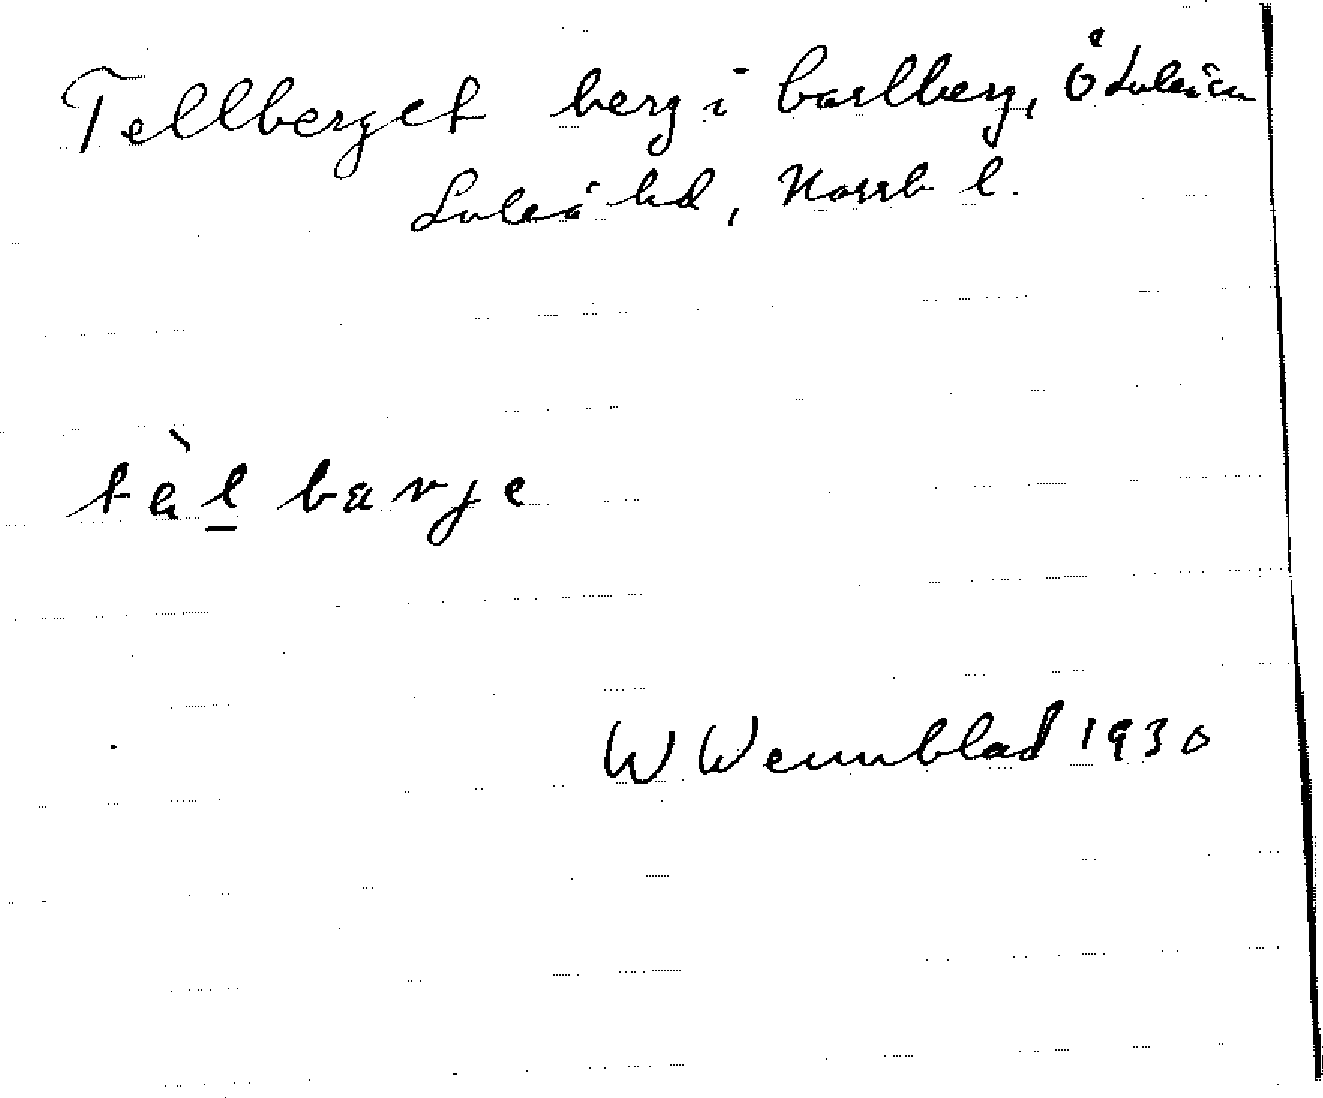 Tellberget berg i Carlberg, Ö Luleå sn
Luleå hd, Norrb l.
tɛ̀l bærje
W Wennblad 1930